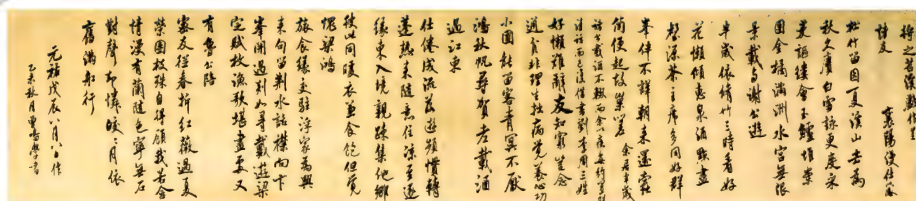 將之苕溪戲作呈
諸友 襄陽漫仕黻
松竹留因夏溪山去為
秋久賡白雪詠更度采
菱謳縷會玉鱸堆案
團金橘滿洲水宮無限
景載与謝公遊
半歲依脩竹三時看好
花懶傾惠泉酒點盡
壑源茶主席多同好群
峯伴不譁朝来還蠹
简便起故巢嗟 余居半歲
諸公載酒不輟而余以疾每約置膳
清話而已復借書劉李周三姓
好懶難辭友知窮豈念
通貧非理生拙病覺養心功
小圃能留客青冥不厭
鴻秋帆尋賀老載酒
過江東
仕倦成流落遊頻慣轉
蓬熱来随意住涼至逐
緣東入境親踈集他鄉
彼此同暖衣兼食飽但覺
愧梁鴻
旅食緣交駐浮家為興
来句留荆水話襟向卞
峯開過剡如尋戴遊梁
定賦枚漁歌堪畫處又
有魯公陪
密友從春拆紅薇過夏
榮團枝殊自得顧我若含
情漫有蘭随色寧無石
對聲却憐皎皎月依
舊滿船行
元祐戊辰八月八日作
乙未秋月